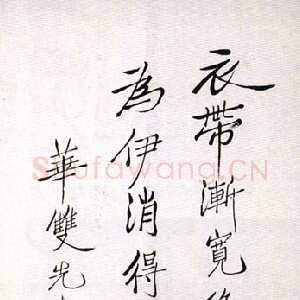 衣帶漸寬
為伊消得
華雙先
Shufawang.CN